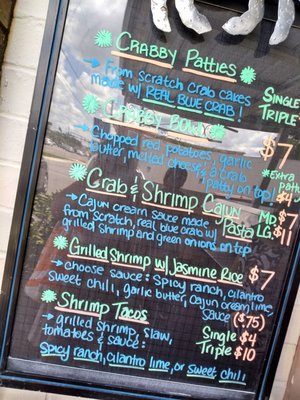 Crabby Patties
→ From scratch Crab cakes
made w/ REAL BLUE CRAB!
Single
Triple
Crabby Bowl $7
→ Chopped red potatoes, garlic
butter, melted cheese & a Crab
patty on top!
*EXTRA
$4
Crab & Shrimp Cajun
Pasta
→ Cajun cream sauce made
from scratch, real blue crab w/
grilled shrimp and green onions on top
MD $7
LG $11
Grilled Shrimp w/ Jasmine Rice $7
→ choose sauce: Spicy ranch, cilantro
sweet chili, garlic butter, Cajun creamy lime
sauce ($.75)
Shrimp Tacos
→ grilled shrimp, slaw,
tomatoes & sauce:
Single $4
Triple $10
Spicy ranch, cilantro lime, or sweet chili